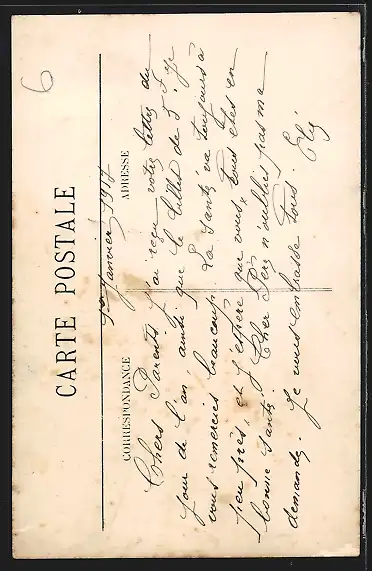 6
CARTE POSTALE
CORRESPONDANCE
ADRESSE
Janvier, 1917
Chers Parents J'ai reçu votre lettre du
jour de l'an, ainsi que le billet de 5 F. Je
vous remercies beaucoup. La Santé va toujours à
peu près, et j'espère que vous, tous êtes en
bonne santé. Cher Père n'oublies pas ma
demande. Je vous embrasse Tous. Ely